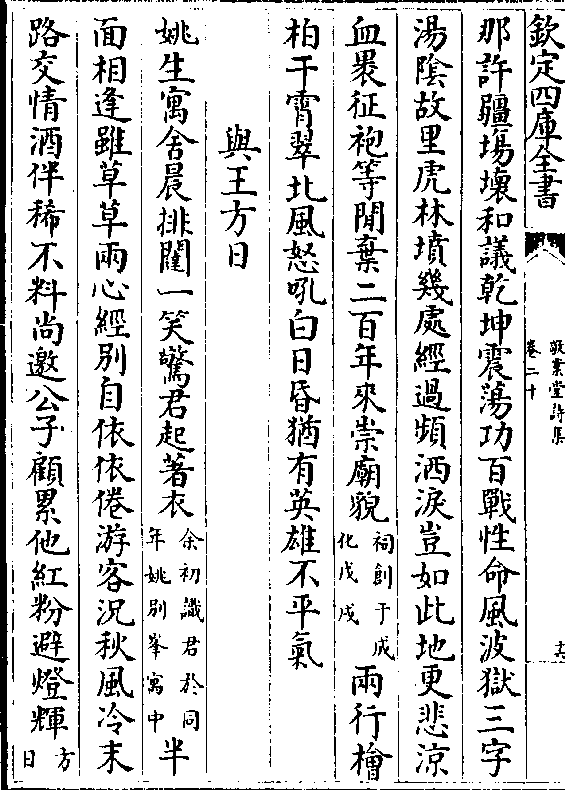 欽定四庫全書
敬業堂詩集
卷二十
那許疆場壞和議乾坤震蕩功百戰性命風波獄三字
湯陰故里虎林墳幾處經過頻洒淚豈如此地更悲涼
血裂征袍等閒棄二百年來崇廟貌祠創于成化戊戌兩行檜
柏干霄翠北風怒吼白日昏猶有英雄不平氣
與王方日
姚生寓舍晨排闥一笑驚君起著衣余初識君於同年姚別峯寓中半
面相逢雖草草兩心經別自依依倦游客况秋風冷末
路交情酒伴稀不料尚邀公子顧累他紅粉避燈輝方日